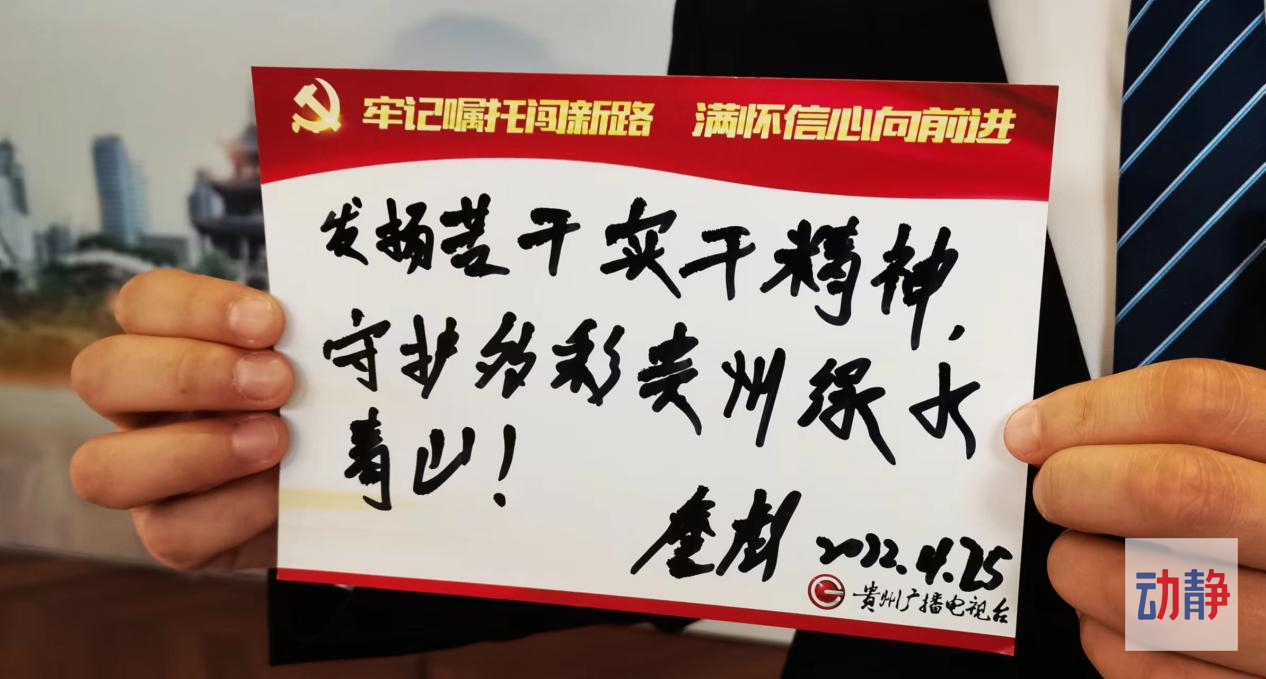 牢记嘱托闯新路 满怀信心向前进
发扬苦干实干精神,
守护多彩贵州绿水
青山!
2022.4.25
贵州广播电视台
动静